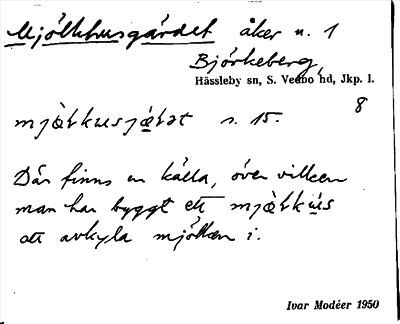 Mjölkhusgärdet åker n. 1
Björkeberg,
Hässleby sn, S. Vedbo hd, Jkp. l.
8
s. 15.
Där finns en källa, över vilken
man har byggt ett
att avkyla mjölken i.
Ivar Modéer 1950